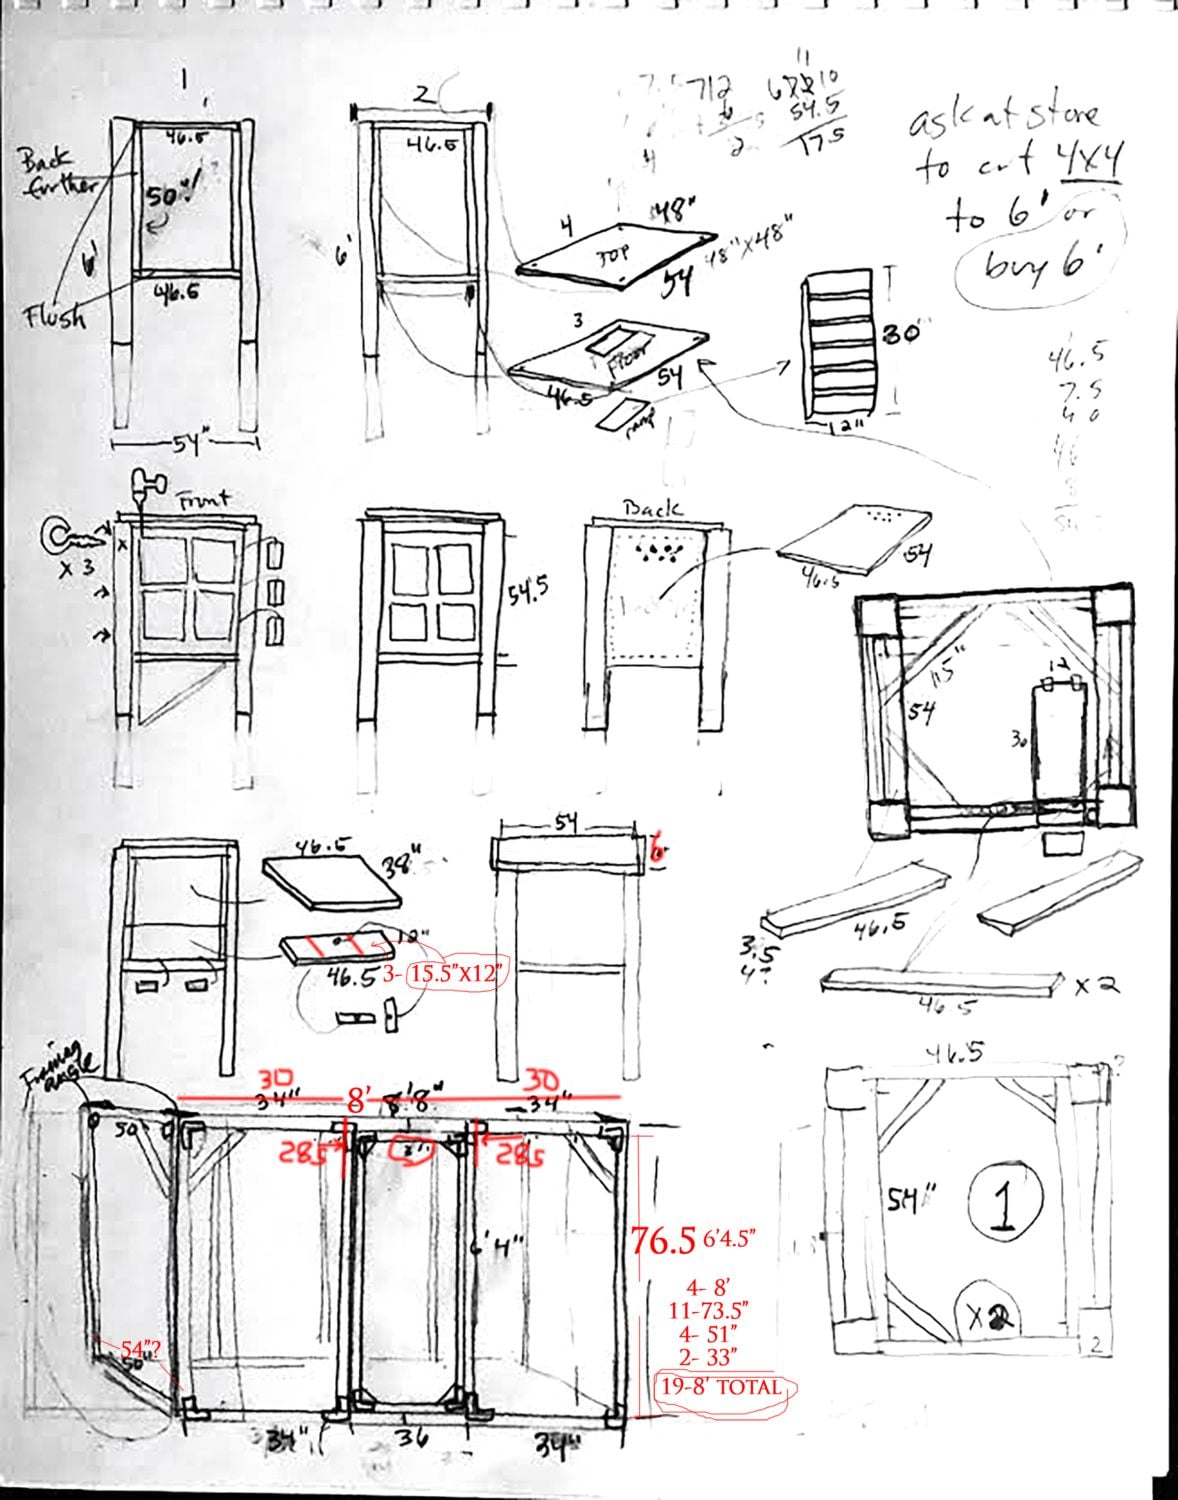 1
46.5
Back
further
50"!
6'
46.5
Flush
54"
2
46.5
6'
712
54.5
17.5
ask at store
to cut 4X4
to 6' or
buy 6'
4
48"
TOP
48"X48"
54
3
Floor
54
46.5
ramp
30"
12"
46.5
7.5
40
Front
X
X 3
54.5
Back
54
46.5
115"
54
12
30
46.5
38"
12"
46.5
3- 15.5"X12"
54
6"
46.5
3.5
4?
46.5
X2
Framing
angle
30
30
34"
8'
8'8"
34"
50
28.5
28.5
6'4"
76.5 6'4.5"
4- 8'
11-73.5"
4- 51"
2- 33"
19-8' TOTAL
54"?
50"
34"
36
34"
46.5
?
54"
1
X2
2